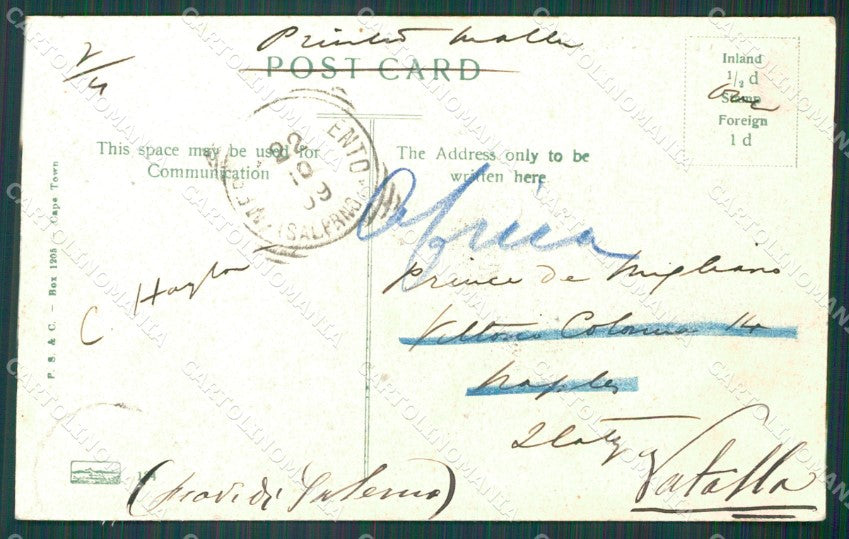 Printed Matter
POST CARD
2/4
Inland
1/2 d
Stamp
Foreign
1 d
This space may be used for
Communication
The Address only to be
written here.
ENTO
(SALERNO)
Africa
C Hayton
Prince de Migliano
Vittoria Colonna 14
Naples
Italy
Vatolla
(prov. di Salerno)
P. S. & C. - Box 1205 - Cape Town
CARTOLINOMANIA